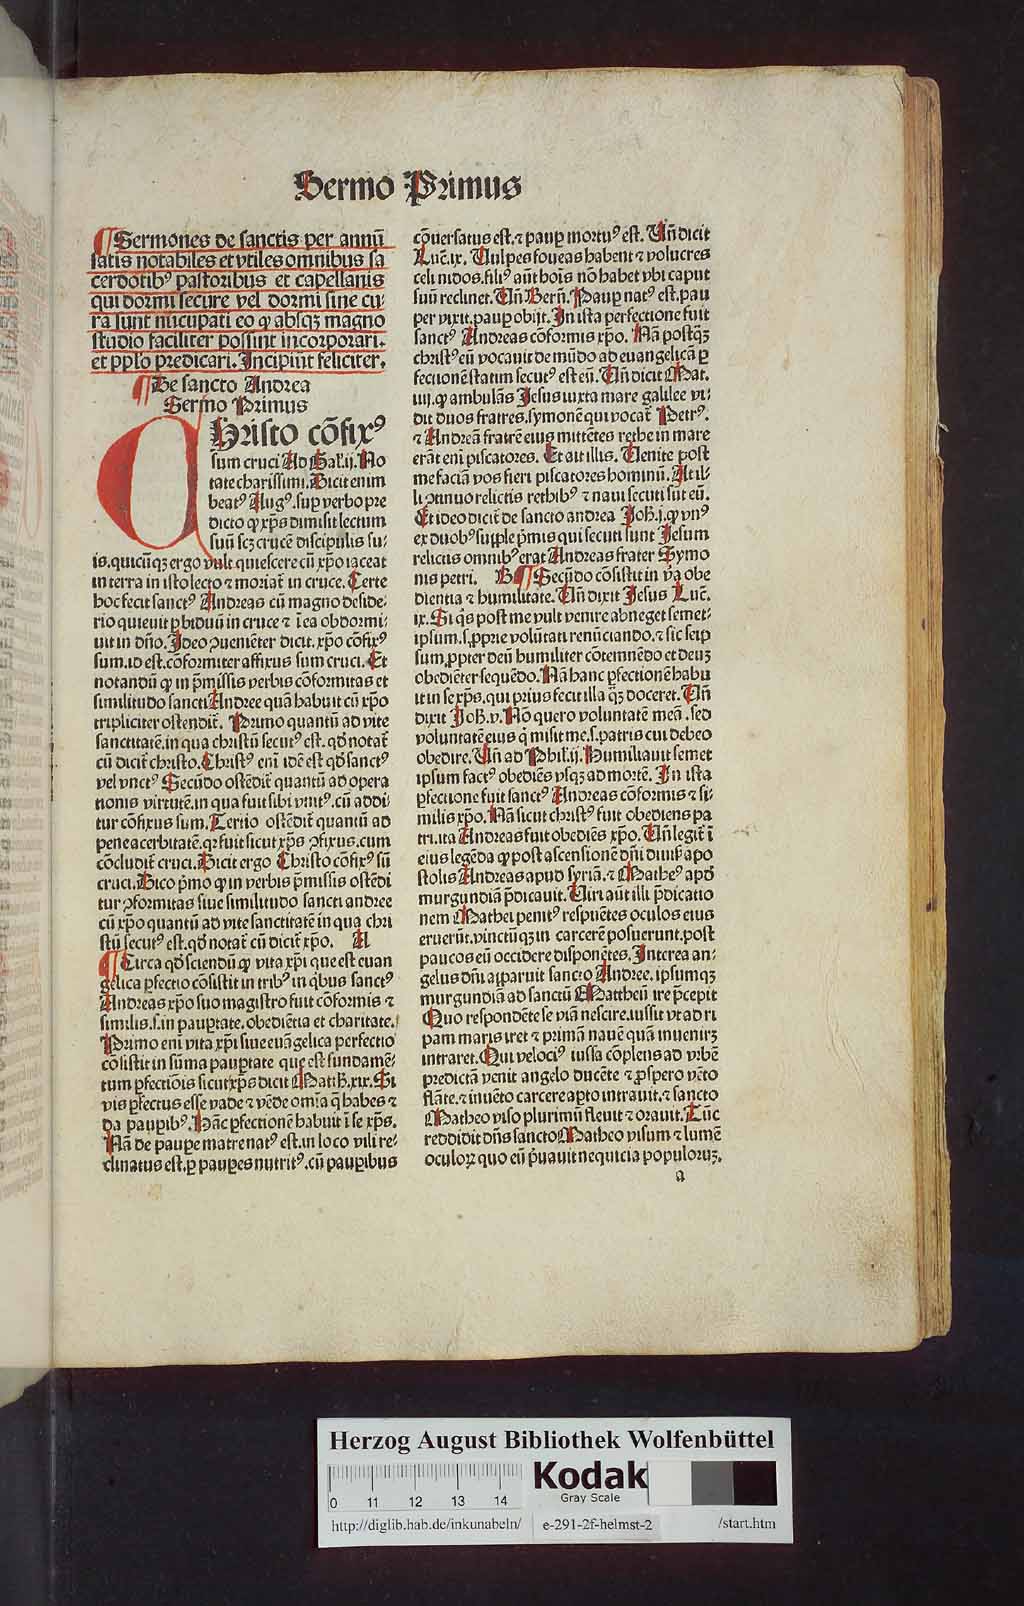 Sermo Primus
¶Sermones de sanctis per annū
satis notabiles et vtiles omnibus sa
cerdotibꝰ pastoribus et capellanis
qui dormi secure vel dormi sine cu⸗
ra sunt nūcupati eo ꝙ absqꝫ magno
studio faciliter possint incorporari.
et pplo predicari. Incipiūt feliciter.
¶De sancto Andrea
Sermo Primus
CHristo cōfixꝰ
sum cruci Ad Gal'.ij. No
tate charissimi. Dicit enim
beatꝰ Augꝰ. suꝑ verbo pre
dicto ꝙ xp̄s dimisit lectum
suū scꝫ crucē discipulis su⸗
is. quicūqꝫ ergo vult quiescere cū xp̄o iaceat
in terra in isto lecto ⁊ moriat̄ in cruce. Certe
hoc fecit sanctꝰ Andreas cū magno deside⸗
rio quieuit ꝑ biduū in cruce ⁊ ī ea obdormi⸗
uit in dn̄o. Ideo ꝯueniēter dicit. xp̄o cōfixꝰ
sum. id est. cōformiter affixus sum cruci. Et
notandū ꝙ in p̄missis verbis cōformitas et
similitudo sancti Andree quā habuit cū xp̄o
tripliciter ostendit̄. Primo quantū ad vite
sanctitatē. in qua christū secutꝰ est. qd̄ notat̄
cū dicit̄ christo. Christꝰ eni idē est qd̄ sanctꝰ
vel vnctꝰ Secūdo ostēdit̄ quantū ad opera
tionis virtutē. in qua fuit sibi vnitꝰ. cū addi
tur cōfixus sum. Tertio ostēdit̄ quantū ad
pene acerbitatē. qꝛ fuit sicut xp̄s ꝯfixus. cum
cōcludit̄ cruci. Dicit ergo Christo cōfixꝰ sū
cruci. Dico p̄mo ꝙ in verbis p̄missis ostēdi
tur ꝯformitas siue similitudo sancti andree
cū xp̄o quantū ad vite sanctitatē in qua chri
stū secutꝰ est. qd̄ notat̄ cū dicit̄ xp̄o. A
¶Circa qd̄ sciendū ꝙ vita xp̄i que est euan
gelica ꝑfectio cōsistit in tribꝰ in qͥbus sanctꝰ
Andreas xp̄o suo magistro fuit cōformis ⁊
similis. s. in pauꝑtate. obediētia et charitate.
Primo eni vita xp̄i siue euāgelica perfectio
cōsistit in sūma pauꝑtate que est fundamē⸗
tum ꝑfectiōis sicut xp̄s dicit Matth.xix. Si
vis ꝑfectus esse vade ⁊ vēde om̄ia q̄ habes ⁊
da pauꝑibꝰ. Hāc ꝑfectionē habuit ī se xp̄s.
Nā de pauꝑe matre natꝰ est. in loco vili re⸗
clinatus est. ꝑ pauꝑes nutritꝰ. cū pauꝑibus
cōuersatus est. ⁊ pauꝑ mortuꝰ est. Un̄ dicit
Luc̄.ix. Uulpes foueas habent ⁊ volucres
celi nidos. filiꝰ aūt hoīs nō habet vbi caput
suū reclinet. Un̄ Bern̄. Pauꝑ natꝰ est. pau
per vixit. pauꝑ obijt. In ista perfectione fuit
sanctꝰ Andreas cōformis xp̄o. Nā postqꝫ
christꝰ eū vocauit de mūdo ad euangelicā ꝑ
fectionē statim secutꝰ est eū. Un̄ dicit Mat.
iiij. ꝙ ambulās Jesus iuxta mare galilee vi⸗
dit duos fratres. symonē qui vocat̄ Petrꝰ.
⁊ Andreā fratrē eius mittētes rethe in mare
erāt eni piscatores. Et ait illis. Uenite post
me faciā vos fieri piscatores hominū. At il⸗
li ꝯtinuo relictis rethibꝰ ⁊ naui secuti sūt eū.
Et ideo dicit̄ de sancto andrea Joh.j. ꝙ vnꝰ
ex duobꝰ fuisse p̄mis qui secuti sunt Jesum
relictis omnibꝰ erat Andreas frater Symo
nis petri. B ¶Secūdo cōsistit in v̄a obe
dientia ⁊ humilitate. Un̄ dixit Jesus Luc̄.
ix. Si qͥs post me vult venire abneget semet⸗
ipsum. s. ꝓprie volūtati renūciando. ⁊ sic seip
sum ꝓpter deū humiliter cōtemnēdo et deuꝫ
obediēter sequēdo. Nā hanc ꝑfectionē habu
it in se xp̄s. qui prius fecit illa q̄ꝫ doceret. Un̄
dixit Joh.v. Nō quero voluntatē meā. sed
voluntatē eius q̄ misit me. s. patris cui debeo
obedire. Un̄ ad Phil'.ij. Humiliauit semet
ipsum factꝰ obediēs vsqꝫ ad mortē. In ista
ꝑfectione fuit sanctꝰ Andreas cōformis ⁊ si⸗
milis xp̄o. Nā sicut christꝰ fuit obediens pa
tri. ita Andreas fuit obediēs xp̄o. Un̄ legit̄ ī
eius legēda ꝙ post ascensionē dn̄i diuis̄ apo
stolis Andreas apud syriā. ⁊ Matheꝰ apd̄
murgundiā p̄dicauit. Uiri aūt illi p̄dicatio
nem Mathei penitꝰ respuētes oculos eius
eruerūt. vinctūqꝫ in carcerē posuerunt. post
paucos eū occidere disponētes. Interea an⸗
gelus dn̄i apparuit sancto Andree. ipsumqꝫ
murgundiā ad sanctū Mattheū ire p̄cepit
Quo respondēte se viā nescire. iussit vt ad ri
pam maris iret ⁊ primā nauē quā inuenirꝫ
intraret. Qui velociꝰ iussa cōplens ad vrbē
predictā venit angelo ducēte ⁊ ꝓspero vēto
flāte. ⁊ inuēto carcere apto intrauit. ⁊ sancto
Matheo viso plurimū fleuit ⁊ orauit. Tūc
reddidit dn̄s sancto Matheo visum ⁊ lumē
oculoꝝ quo eū p̄uauit nequicia populoruꝫ.
a
Herzog August Bibliothek Wolfenbüttel
0 11 12 13 14
Kodak
Gray Scale
http://diglib.hab.de/inkunabeln/ e-291-2f-helmst-2 /start.htm